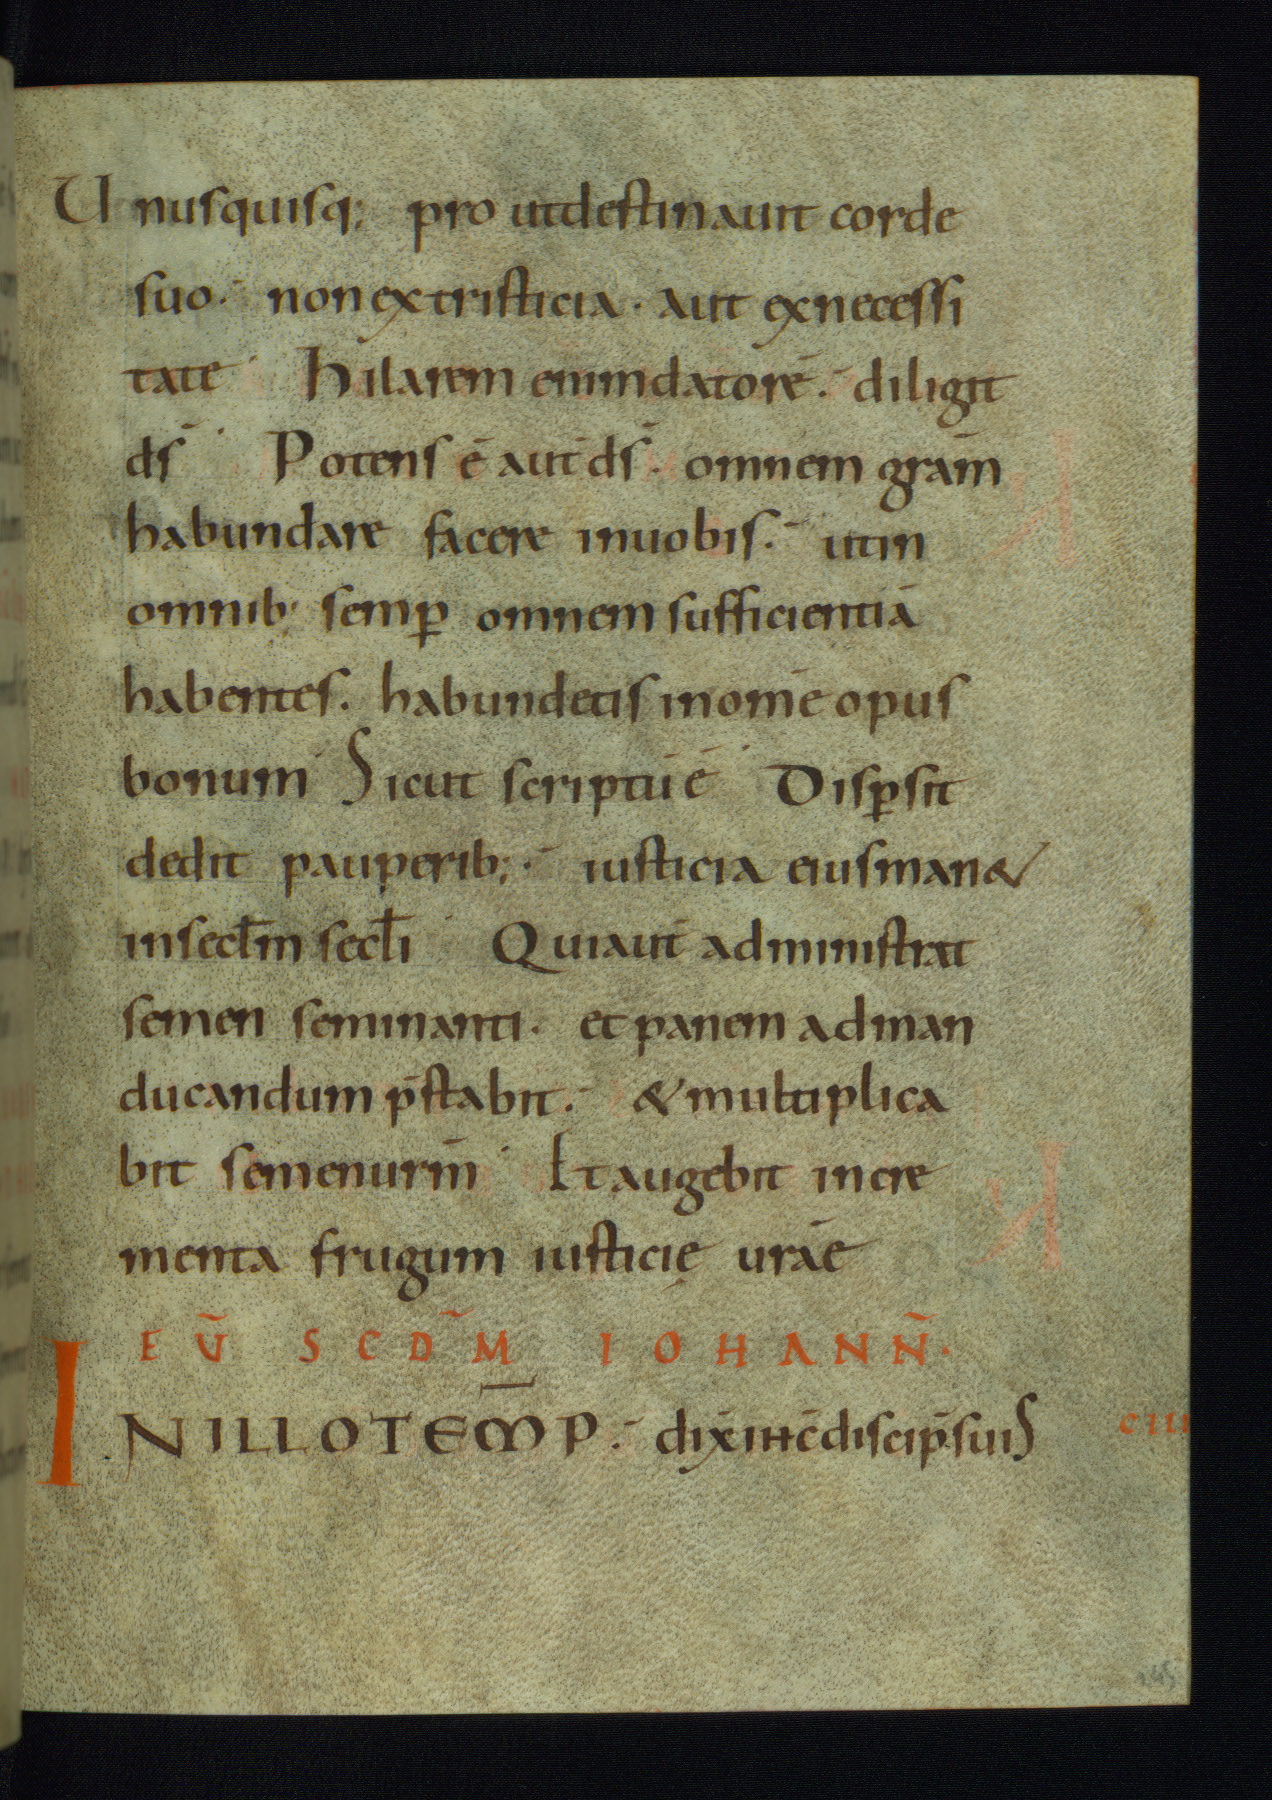 Unusquisq; pro utdestinauit corde
suo. non extristicia. aut exnecessi
tate Hilarem enimdatorē. diligit
ds̄ Potens ē aut̄ ds̄. omnem grām̄
habundare facere inuobis. utin
omnib; semꝑ omnem sufficientiā
habentes. habundetis inom̄e opus
bonum Sicut scriptū ē Disꝑsit
dedit pauperib;. iusticia eiusman&
insecl̄m secl̄i Quiaut̄ administrat
semen seminanti. et panem adman
ducandum p̄stabit. &multiplica
bit semenurm̄ Et augebit incre
menta frugum iusticię urāe
EṼ SCD̃M IOHANÑ.
INILLOTEM̄P. dix̄ ihc̄ discip̄. suis
CIII
145